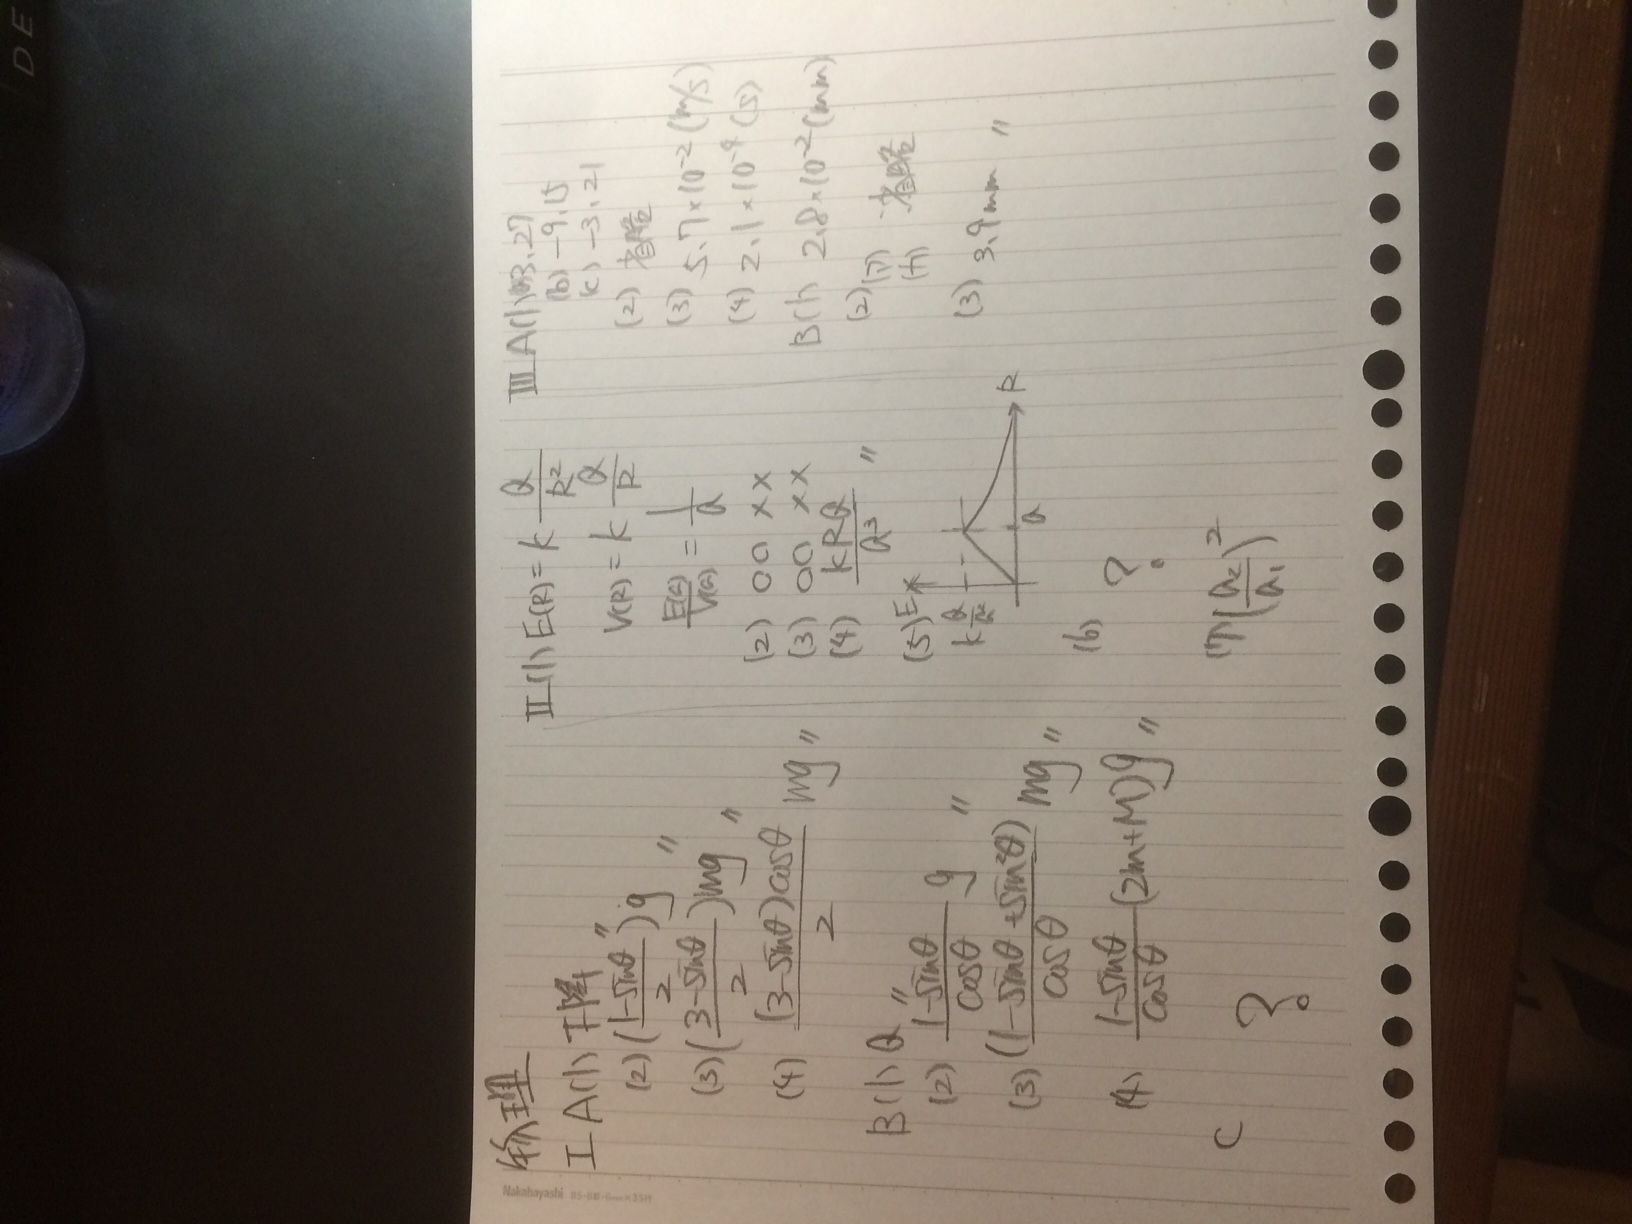 物理
I A(1) 下降〃
(2) (1-sinθ/2)g〃
(3) (3-sinθ/2)mg〃
(4) (3-sinθ)cosθ/2 mg〃
B(1) Q〃
(2) 1-sinθ/cosθ g〃
(3) (1-sinθ+sin²θ)/cosθ mg〃
(4) 1-sinθ/cosθ (2m+M)g〃
C ?
II (1) E(R)=k Q/R²
V(R)=k Q/R
E(a)/V(a) = 1/a
(2) ○○××
(3) ○○××
(4) kRQ/a³〃
(5) E
k Q/a²
a
R
(6) ?
(7) (a₂/a₁)²
III A(1)(a)3.27
(b) -9.15
(c) -3.21
(2) 省略
(3) 5.7×10⁻² (m/s)
(4) 2.1×10⁻⁴ (s)
B(1) 2.8×10⁻² (mm)
(2)(ア)
(イ) 省略
(3) 3.9mm〃
Nakabayashi
DE